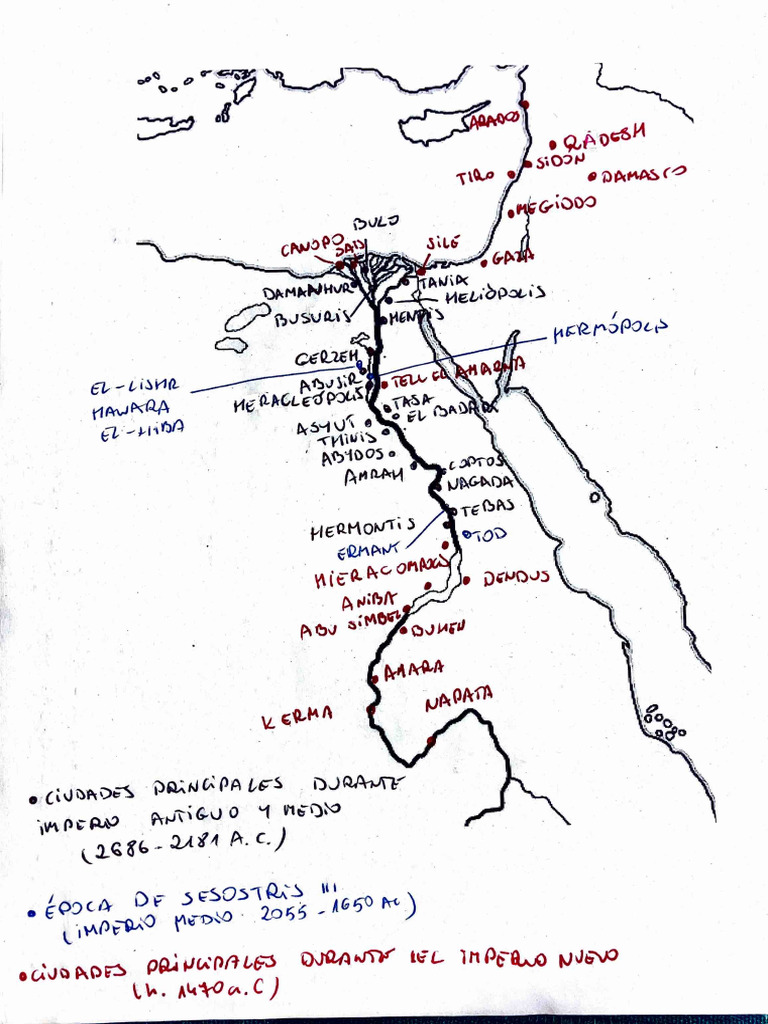 ARADOS
QADESH
SIDÓN
TIRO
DAMASCO
MEGIDDO
BUTO
CANOPO
SAIS
SILE
GAZA
DAMANHUR
TANIA
HELIÓPOLIS
BUSURIS
MENFIS
HERMÓPOLIS
GERZEH
EL-LISHR
ABUSIR
TELL EL AMARNA
HAWARA
HERACLEÓPOLIS
EL-HIBA
TASA
EL BADARI
ASYUT
THINIS
ABYDOS
AMRAH
COPTOS
NAGADA
TEBAS
HERMONTIS
TOD
ERMANT
HIERACOMPOLIS
DENDUS
ANIBA
ABU SIMBEL
BUHEN
AMARA
NAPATA
KERMA
• CIUDADES PRINCIPALES DURANTE
IMPERIO ANTIGUO Y MEDIO
(2686-2181 A.C.)
• ÉPOCA DE SESOSTRIS III
(IMPERIO MEDIO 2055-1650 AC)
• CIUDADES PRINCIPALES DURANTE EL IMPERIO NUEVO
(h. 1470 a.C)